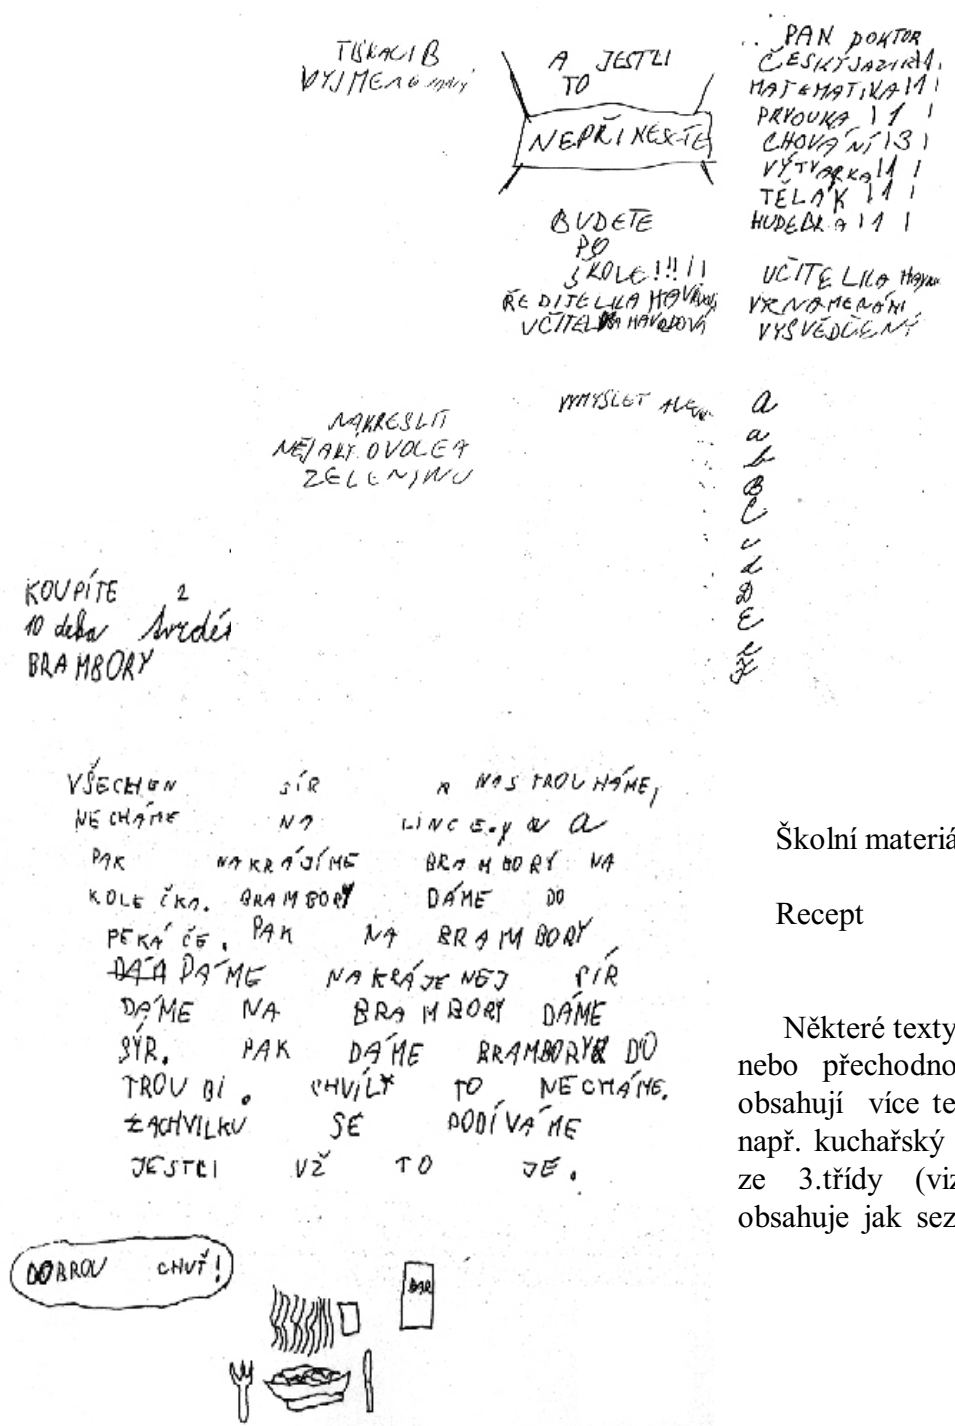 TISKACI B
A JESTLI
TO
NEPŘINESETE
BUDETE
PO
ŠKOLE!!!!!
ŘEDITELKA
UČITELKA HAVRDOVÁ
PAN DOKTOR
ČESKÝ JAZIK 1
MATEMATIKA 1
PRVOUKA 1
CHOVÁNÍ 3
VÝTVARKA 1
TĚLÁK 1
HUDEBKA 1
UČITELKA
VYSVĚDČENÝ
NAKRESLIT
NĚJAKÝ OVOCE A
ZELENINU
VYMYSLET
a
a
b
B
C
c
d
D
E
e
F
KOUPÍTE 2
10 deka
BRAMBORY
VŠECHEN SÍR NASTROUHÁME,
NECHÁME NA LINCE. a
PAK NAKRÁJÍME BRAMBORY NA
KOLEČKA. BRAMBORY DÁME DO
PEKÁČE. PAK NA BRAMBORY
DÁME NAKRÁJENEJ SÍR
DÁME NA BRAMBORY DÁME
SÝR. PAK DÁME BRAMBORY DO
TROUBI. CHVÍLY TO NECHÁME.
ZACHVILKU SE PODÍVÁME
JESTLI UŽ TO JE.
DOBROU CHUŤ!
Školní materiá
Recept
Některé texty
nebo přechodno
obsahují více te
např. kuchařský
ze 3.třídy (viz
obsahuje jak sez